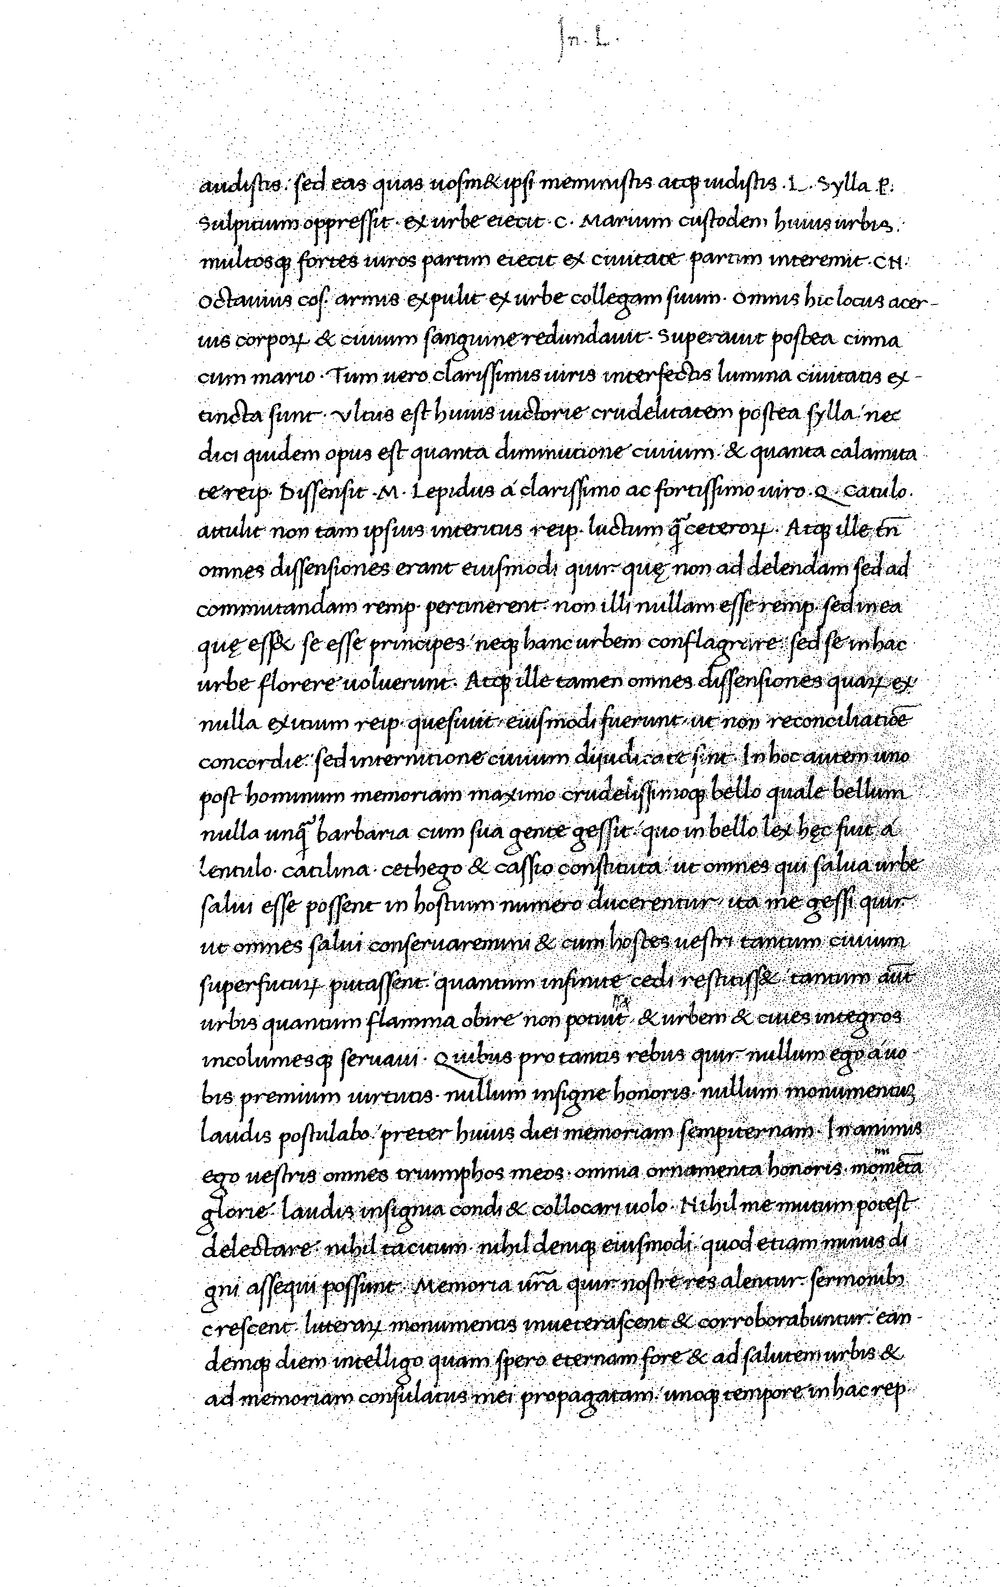 In. L.
audistis. sed eas quas uosm& ipsi meministis atqꝫ uidistis. L. Sylla P.
Sulpitium oppressit. ex urbe eiecit. C. Marium custodem huius urbis.
multosqꝫ fortes uiros partim eiecit ex ciuitate partim interemit. CN.
Octauius coſ. armis expulit ex urbe collegam suum. Omnis hic locus acer-
uis corporꝝ & ciuium sanguine redundauit. Superauit postea cinna
cum mario. Tum uero clarissimis uiris interfectis lumina ciuitatis ex-
tincta sunt. Vltus est huius uictorie crudelitatem postea sylla. nec
dici quidem opus est quanta diminutione ciuium. & quanta calamita
te reip. Dissensit. M. Lepidus a clarissimo ac fortissimo uiro. Q. Catulo.
attulit non tam ipsius interitus reip. luctum qꝫ̃ ceterorꝝ. Atqꝫ ille tn̄
omnes dissensiones erant eiusmodi quir. quę non ad delendam sed ad
commutandam remp. pertinerent. non illi nullam esse remp. sed in ea
quę ess& se esse principes. neqꝫ hanc urbem conflagrare. sed se in hac
urbe florere uoluerunt. Atqꝫ ille tamen omnes dissensiones quarꝝ ex
nulla exitium reip. quesiuit. eiusmodi fuerunt. ut non reconciliatiōe
concordie. sed internitione ciuium dijudicate sint. In hoc autem uno
post hominum memoriam maximo crudelissimoqꝫ bello quale bellum
nulla unqꝫ̃ barbaria cum sua gente gessit. quo in bello lex hęc fuit a
lentulo. catilina. cethego & cassio constituta. ut omnes qui salua urbe
salui esse possent in hostium numero ducerentur. ita me gessi quir.
ut omnes salui conseruaremini & cum hostes uestri tantum ciuium
superfuturꝝ putassent. quantum infinite cedi restitiss& tantum aūt
urbis quantum flamma obire non potuit. & urbem & ciues integros
incolumesqꝫ seruaui. Quibus pro tantis rebus quir. nullum ego a uo
bis premium uirtutis. nullum insigne honoris. nullum monumentuꝫ
laudis postulabo. preter huius diei memoriam sempiternam. In animis
ego uestris omnes triumphos meos. omnia ornamenta honoris. momēta
glorie. laudis insignia condi & collocari uolo. Nihil me mutum potest
delectare. nihil tacitum. nihil deniqꝫ eiusmodi. quod etiam minus di
gni assequi possunt. Memoria ur̄a quir. nostre res alentur. sermonibꝫ
crescent. literarꝝ monumentis inueterascent & corroborabuntur. ean-
demqꝫ diem intelligo quam spero eternam fore & ad salutem urbis &
ad memoriam consulatus mei propagatam. unoqꝫ tempore in hac rep.